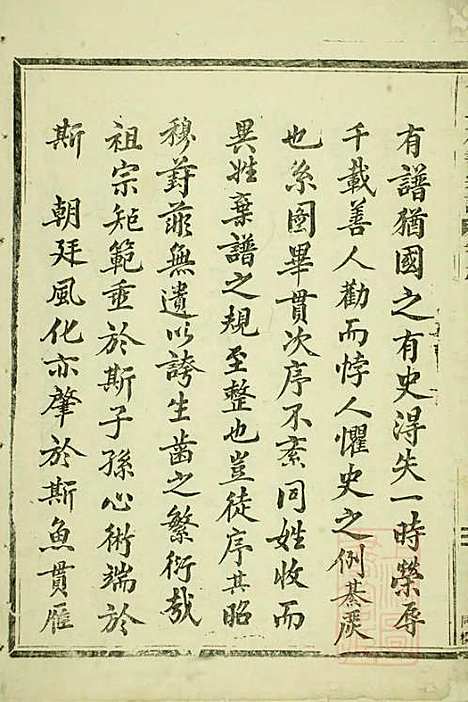 有譜猶國之有史淂失一時榮辱
千載善人勸而悖人懼史之例綦嚴
也系圖畢貫次序不紊同姓收而
異姓棄譜之規至整也豈徒序其昭
穆葑菲無遺以誇生齒之繁衍哉
祖宗矩範垂於斯子孫心術端於
斯　朝廷風化亦肇於斯魚貫雁